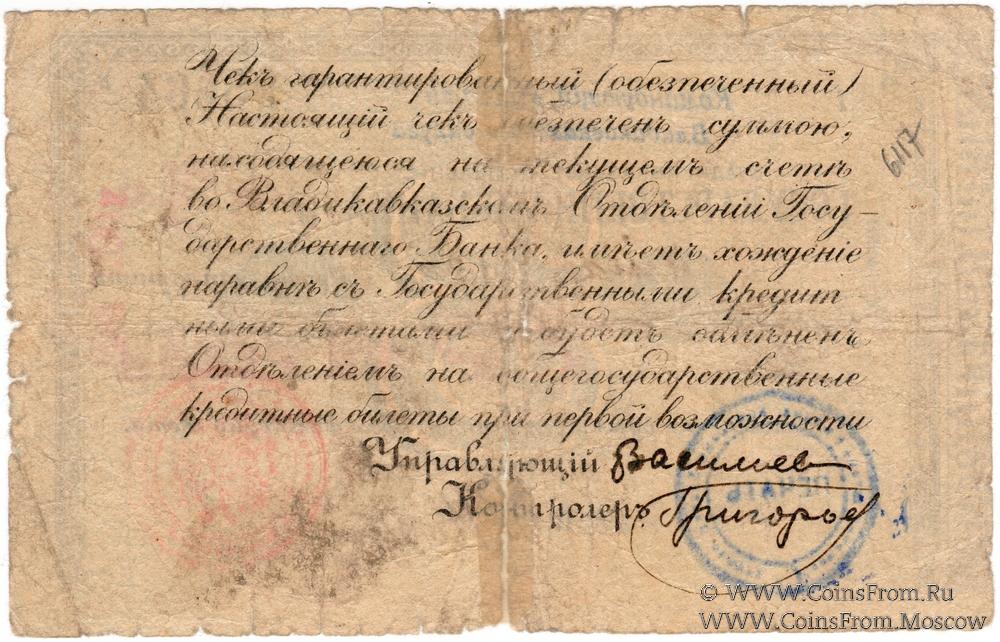 Чекъ гарантированный (обезпеченный)
Настоящій чекъ обезпеченъ суммою,
находящеюся на текущемъ счетѣ
во Владикавказскомъ Отдѣленіи Госу-
дарственнаго Банка, имѣетъ хожденіе
наравнѣ съ Государственными кредит-
ными билетами и будетъ обмѣненъ
Отдѣленіемъ на общегосударственные
кредитные билеты при первой возможности
6117
Управляющій Василиев
Контролеръ Григорьев
ПЕЧАТЬ
© WWW.CoinsFrom.Ru
WWW.CoinsFrom.Moscow